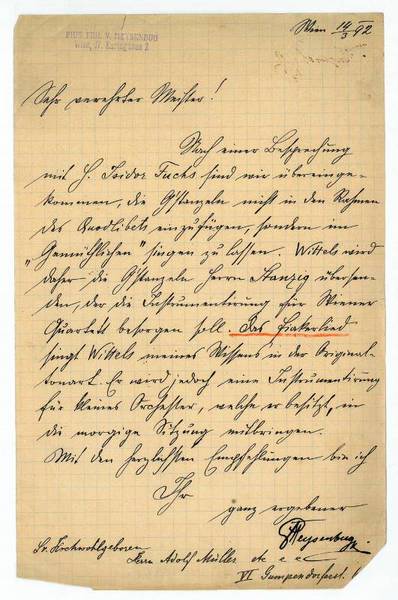 PIUS FHR. V. MEYSENBUG
Wien 14/3 92
Sehr verehrter Meister!
Nach einer Besprechung
mit H. Isidor Fuchs sind wir übereinge-
kommen, die G'stanzeln nicht in den Rahmen
des Quodlibets einzufügen, sondern im
„Gemüthlichen" singen zu lassen. Wittels wird
daher die G'stanzeln Herrn Stanzig übersen-
den, der die Instrumentirung für Wiener
Quartett besorgen soll. Das Fiakerlied
singt Wittels meines Wissens in der Original-
tonart. Er wird jedoch eine Instrumentirung
für kleines Orchester, welche er besitzt, in
die morgige Sitzung mitbringen.
Mit den herzlichsten Empfehlungen bin ich
Ihr
ganz ergebener
Meysenbug
Sr. Hochwohlgeboren
Herrn Adolf Müller etc
VI Gumpendorferst.